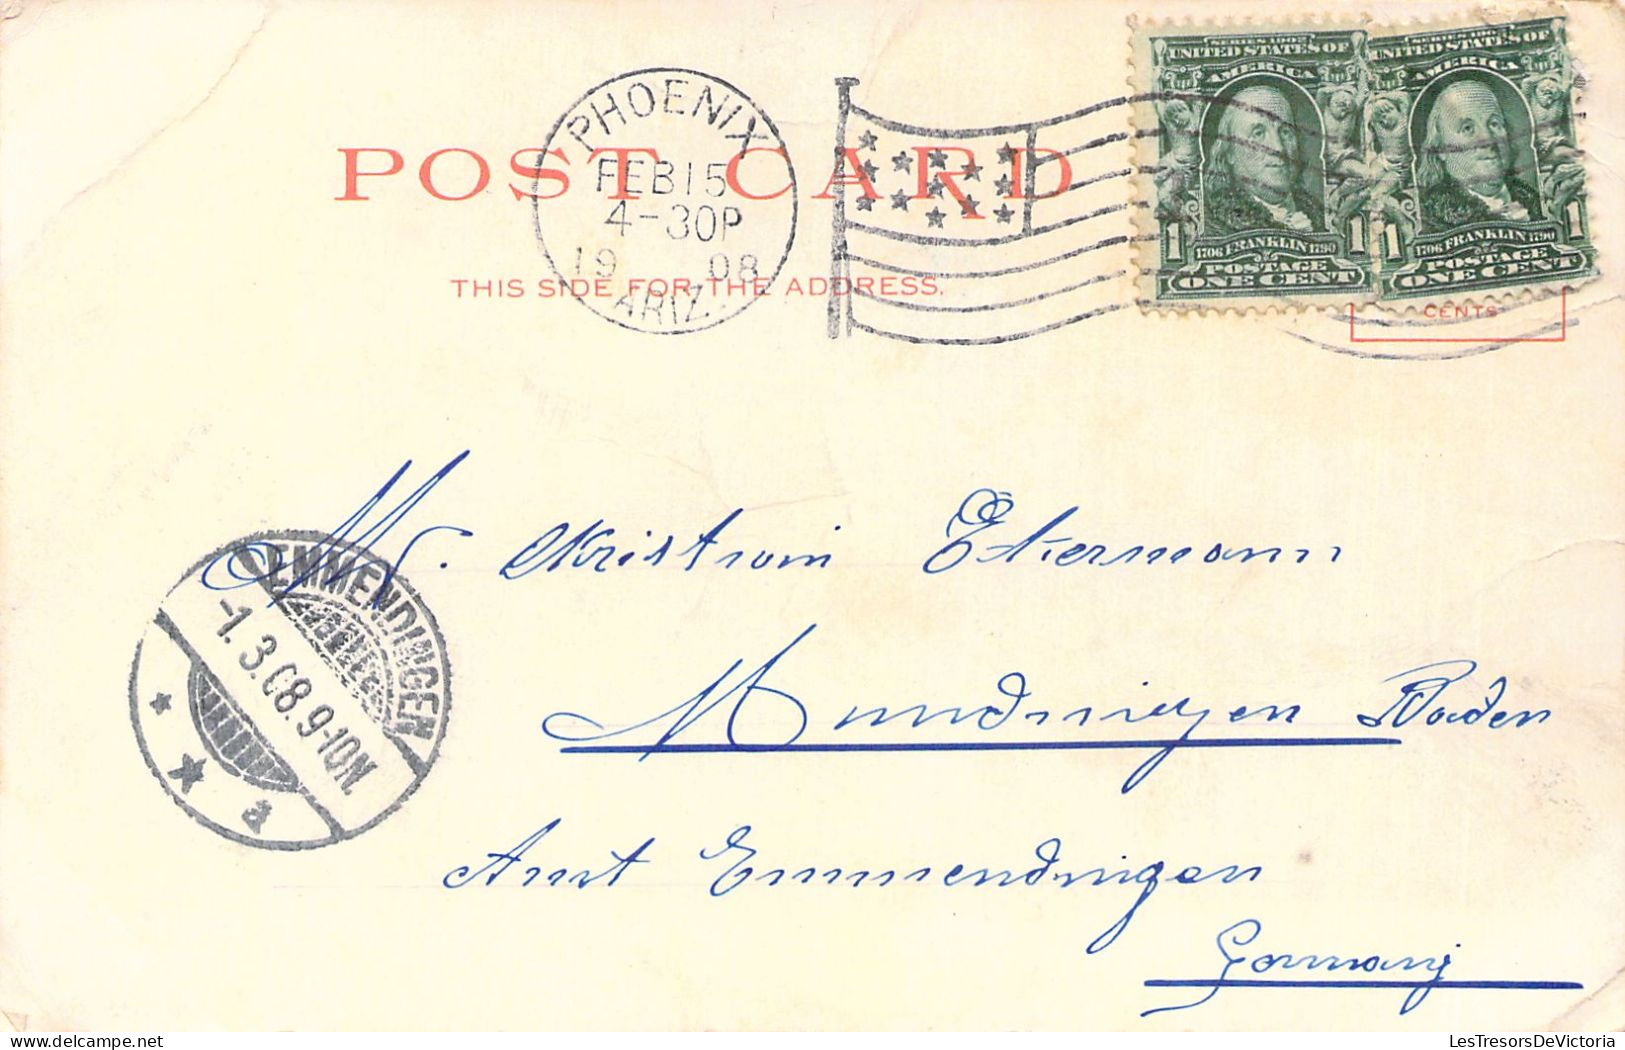 POST CARD
THIS SIDE FOR THE ADDRESS.
PHOENIX
FEB 15
4-30P
19 08
ARIZ.
SERIES 1902
UNITED STATES OF
AMERICA
1 1706 FRANKLIN 1790 1
POSTAGE
ONE CENT
UNITED STATES OF
AMERICA
1 1706 FRANKLIN 1790 1
POSTAGE
ONE CENT
CENTS
EMMENDINGEN
-1.3.08.9-10N.
a
M.
Mundingen Baden
Amt Emmendingen
Germany
LesTresorsDeVictoria